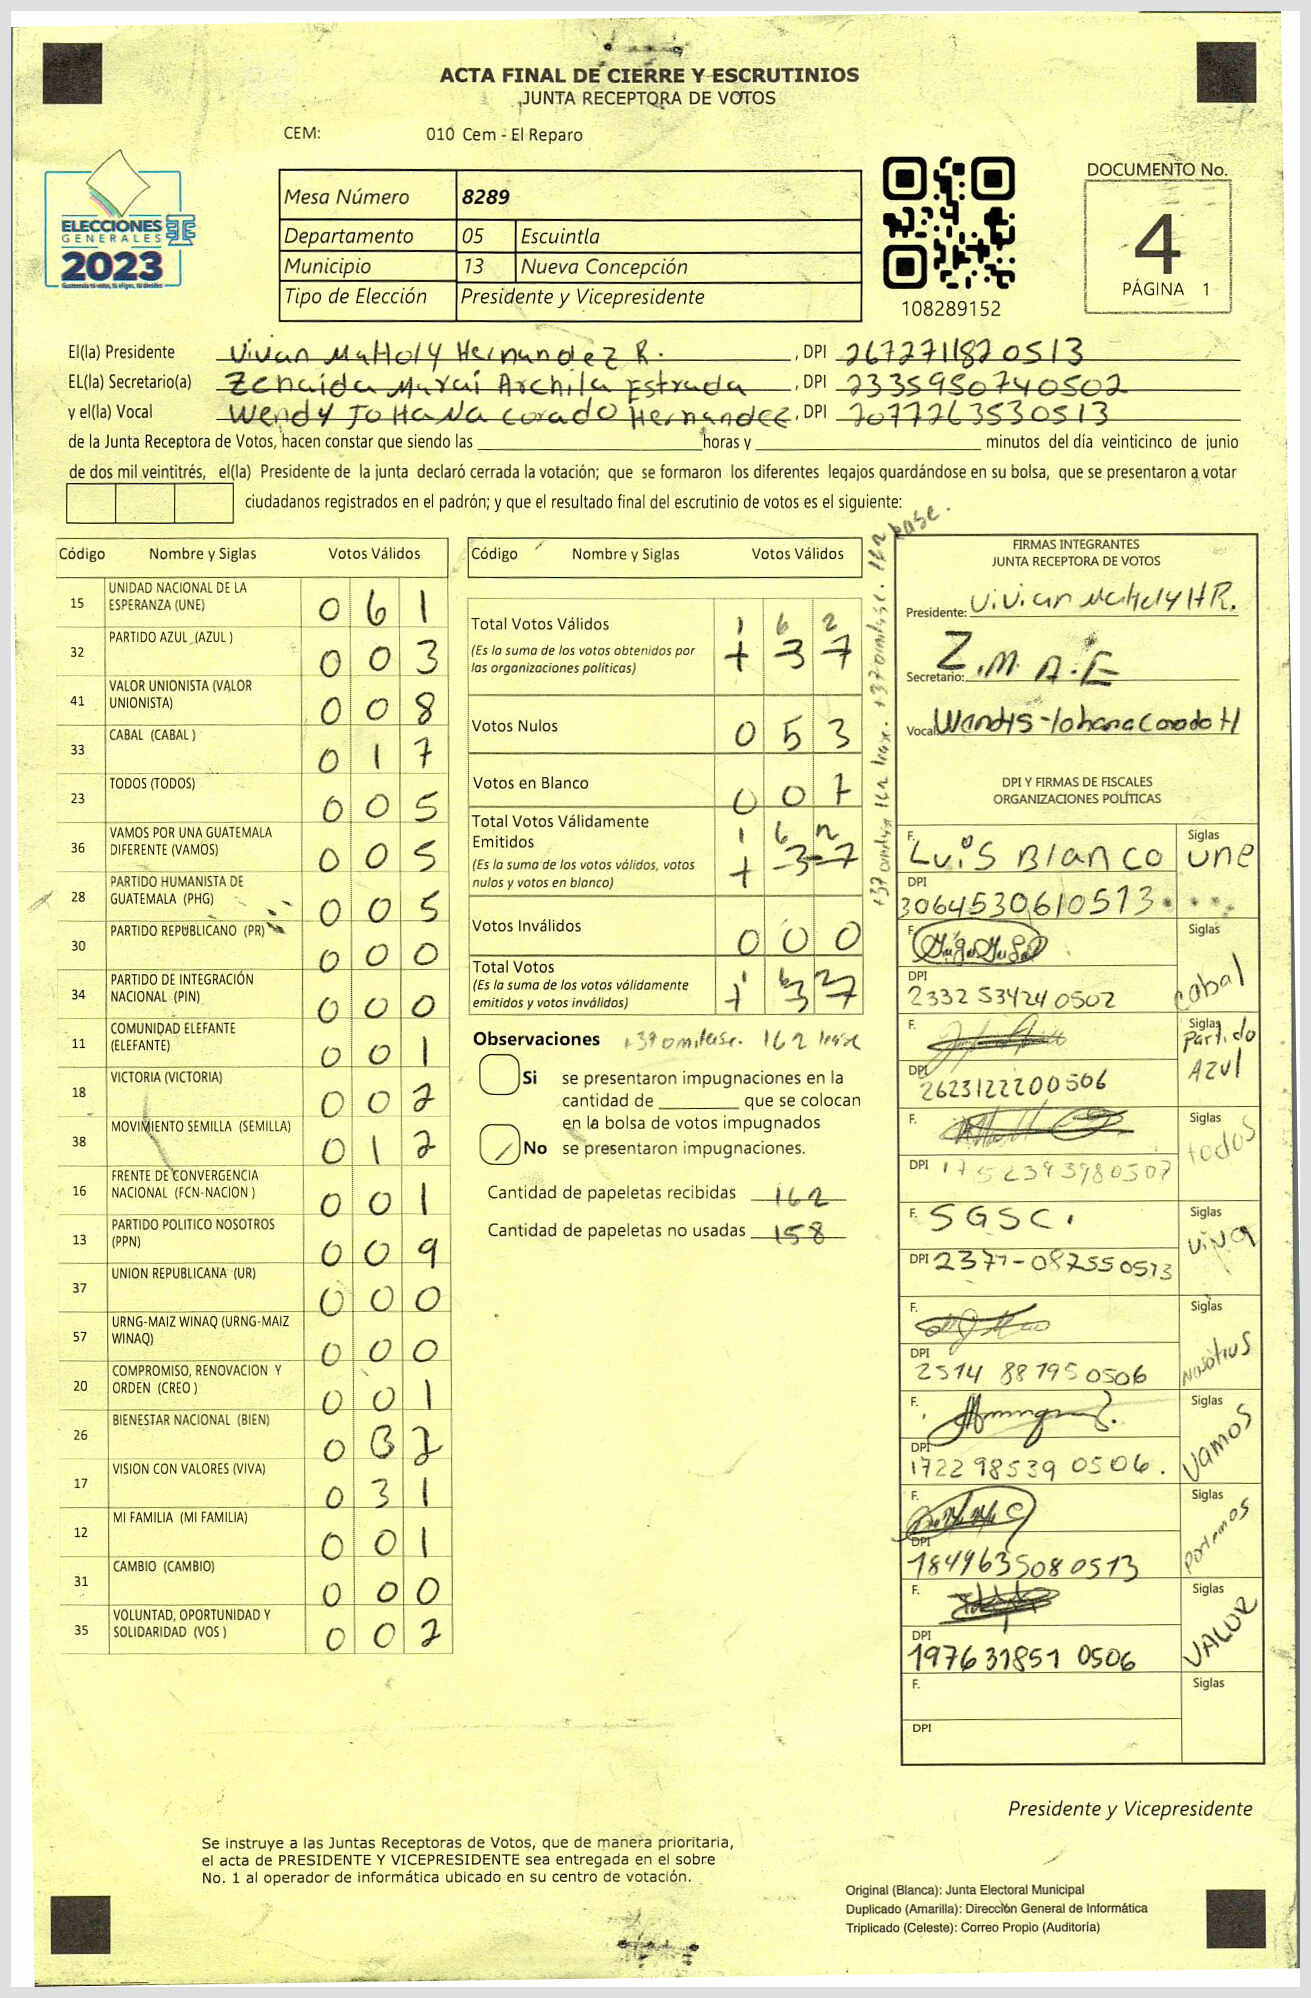 ACTA FINAL DE CIERRE Y ESCRUTINIOS
JUNTA RECEPTORA DE VOTOS
CEM: 010 Cem - El Reparo
ELECCIONES
GENERALES
2023
Mesa Número 8289
Departamento 05 Escuintla
Municipio 13 Nueva Concepción
Tipo de Elección Presidente y Vicepresidente
108289152
DOCUMENTO No.
4
PÁGINA 1
El(la) Presidente Vivian Mattoly Hernandez R. , DPI 2672711820513
EL(la) Secretario(a) Zenaida Marai Archila Estrada , DPI 2335950740502
y el(la) Vocal Wendy Johana Corado Hernandez , DPI 2077263530513
de la Junta Receptora de Votos, hacen constar que siendo las horas y minutos del día veinticinco de junio
de dos mil veintitrés, el(la) Presidente de la junta declaró cerrada la votación; que se formaron los diferentes legajos guardándose en su bolsa, que se presentaron a votar
ciudadanos registrados en el padrón; y que el resultado final del escrutinio de votos es el siguiente:
Código Nombre y Siglas Votos Válidos
15 UNIDAD NACIONAL DE LA ESPERANZA (UNE) 0 6 1
32 PARTIDO AZUL (AZUL ) 0 0 3
41 VALOR UNIONISTA (VALOR UNIONISTA) 0 0 8
33 CABAL (CABAL ) 0 1 7
23 TODOS (TODOS) 0 0 5
36 VAMOS POR UNA GUATEMALA DIFERENTE (VAMOS) 0 0 5
28 PARTIDO HUMANISTA DE GUATEMALA (PHG) 0 0 5
30 PARTIDO REPUBLICANO (PR) 0 0 0
34 PARTIDO DE INTEGRACIÓN NACIONAL (PIN) 0 0 0
11 COMUNIDAD ELEFANTE (ELEFANTE) 0 0 1
18 VICTORIA (VICTORIA) 0 0 2
38 MOVIMIENTO SEMILLA (SEMILLA) 0 1 2
16 FRENTE DE CONVERGENCIA NACIONAL (FCN-NACION ) 0 0 1
13 PARTIDO POLITICO NOSOTROS (PPN) 0 0 9
37 UNION REPUBLICANA (UR) 0 0 0
57 URNG-MAIZ WINAQ (URNG-MAIZ WINAQ) 0 0 0
20 COMPROMISO, RENOVACION Y ORDEN (CREO ) 0 0 1
26 BIENESTAR NACIONAL (BIEN) 0 3 2
17 VISION CON VALORES (VIVA) 0 3 1
12 MI FAMILIA (MI FAMILIA) 0 0 1
31 CAMBIO (CAMBIO) 0 0 0
35 VOLUNTAD, OPORTUNIDAD Y SOLIDARIDAD (VOS ) 0 0 2
Código Nombre y Siglas Votos Válidos
Total Votos Válidos 1 6 2
(Es la suma de los votos obtenidos por las organizaciones políticas) 1 3 7
Votos Nulos 0 5 3
Votos en Blanco 0 0 7
Total Votos Válidamente Emitidos 1 6 2
(Es la suma de los votos válidos, votos nulos y votos en blanco) 1 3 7
Votos Inválidos 0 0 0
Total Votos 1 6 2
(Es la suma de los votos válidamente emitidos y votos inválidos) 1 3 7
137 omitase. 162 lease. 137 omitase. 162 lease.
Observaciones 137 omitase. 162 lease
Si se presentaron impugnaciones en la
cantidad de que se colocan
en la bolsa de votos impugnados
No se presentaron impugnaciones.
Cantidad de papeletas recibidas 162
Cantidad de papeletas no usadas 158
FIRMAS INTEGRANTES
JUNTA RECEPTORA DE VOTOS
Presidente: Vivian Mattoly H R.
Secretario: Z.M.A.E
Vocal Wendys Johana Corado H
DPI Y FIRMAS DE FISCALES
ORGANIZACIONES POLÍTICAS
F. Luis Blanco Siglas une
DPI 3064530610513
F. Siglas cabal
DPI 2332 53424 0502
F. Siglas Partido Azul
DPI 2623122200506
F. Siglas todos
DPI 1752393980507
F. SGSC. Siglas viva
DPI 2377-087550513
F. Siglas nosotros
DPI 2514 88795 0506
F. Siglas Vamos
DPI 1722 98539 0506.
F. Siglas Podemos
DPI 1849635080513
F. Siglas VALOR
DPI 197631851 0506
F. Siglas
DPI
Presidente y Vicepresidente
Se instruye a las Juntas Receptoras de Votos, que de manera prioritaria,
el acta de PRESIDENTE Y VICEPRESIDENTE sea entregada en el sobre
No. 1 al operador de informática ubicado en su centro de votación.
Original (Blanca): Junta Electoral Municipal
Duplicado (Amarilla): Dirección General de Informática
Triplicado (Celeste): Correo Propio (Auditoría)